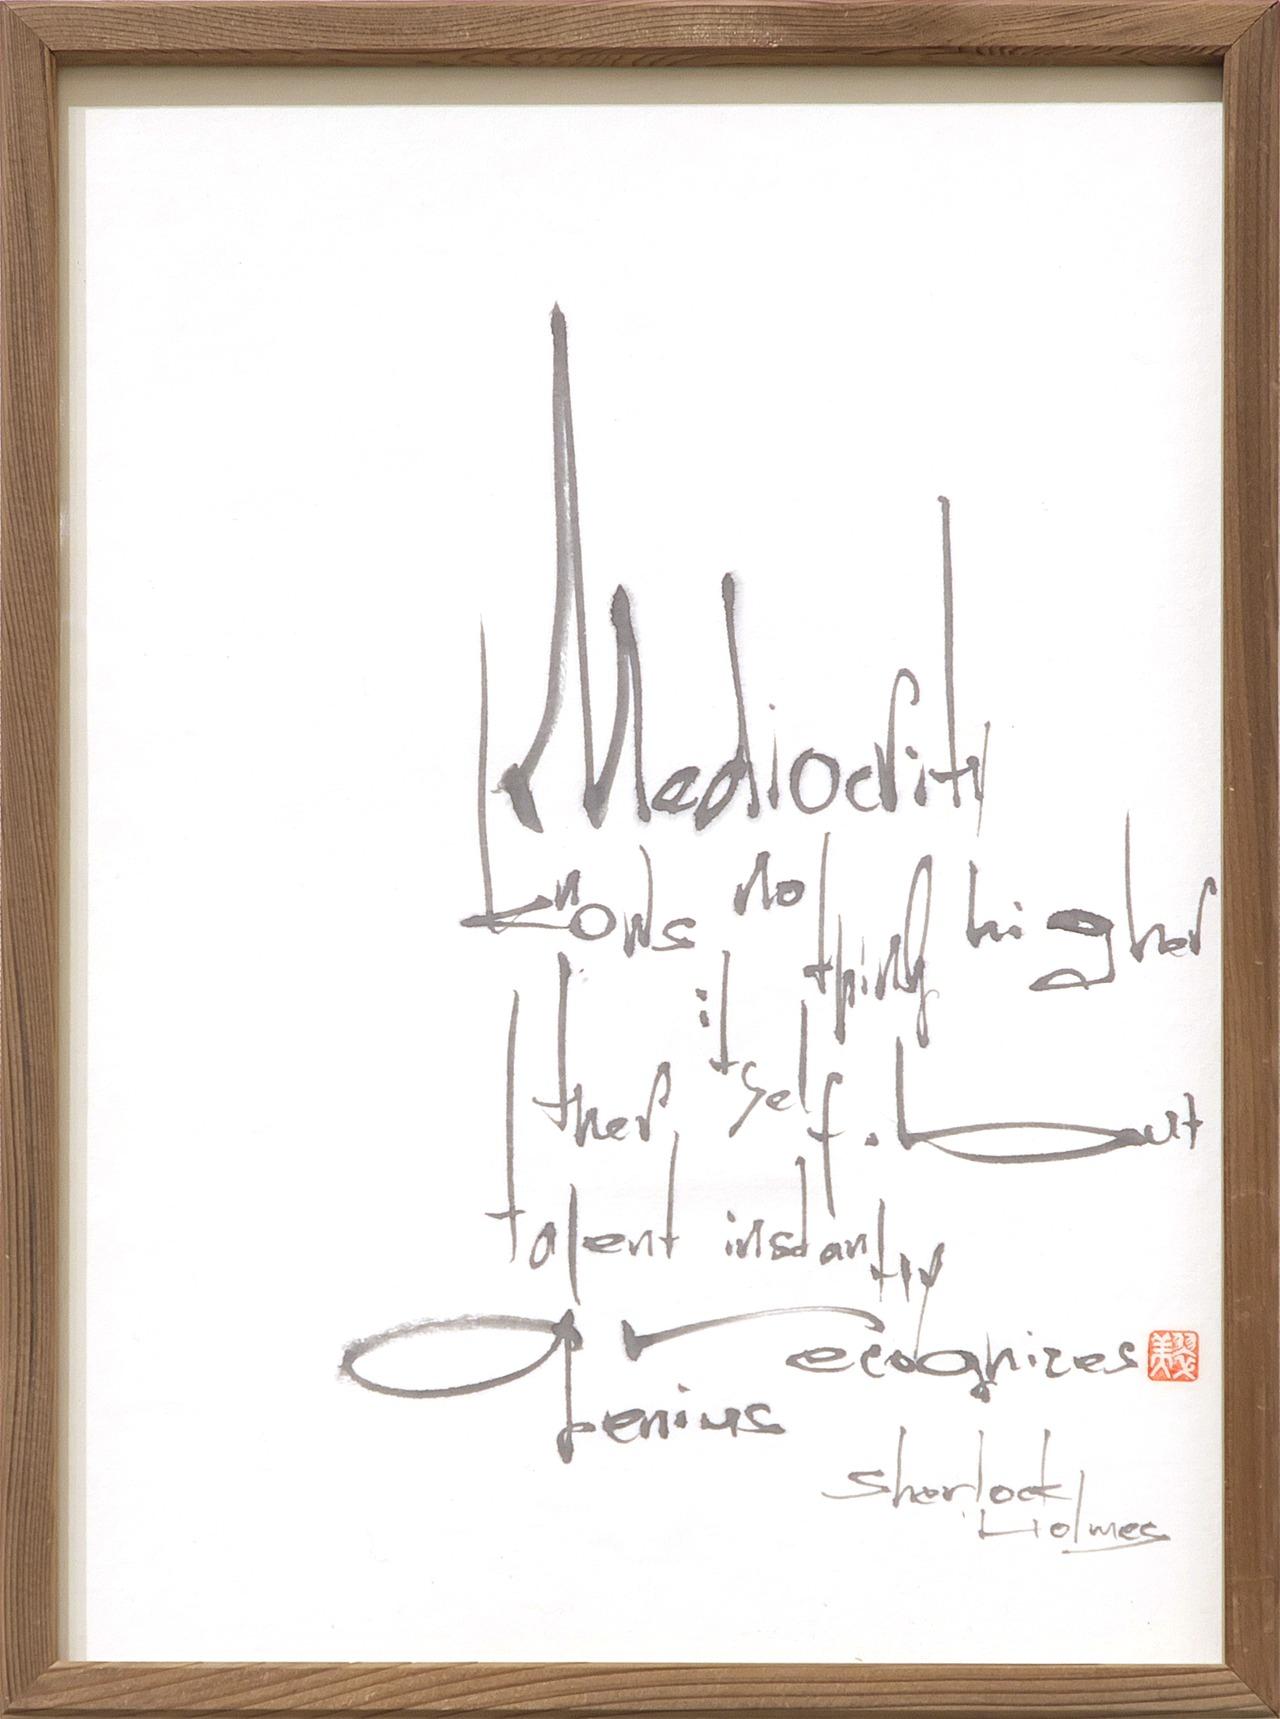 Mediocrity
knows nothing higher
ther itself. but
talent instantly
recognizes
genius
Sherlock
Holmes